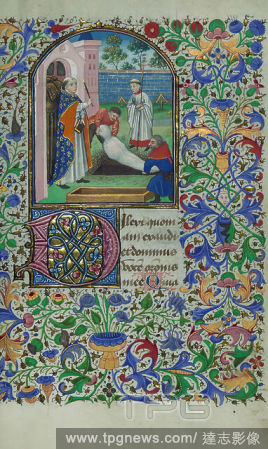 Dilexi quoni
am exaudi
et dominus
voce orationis
mee Quia
TPG
www.tpgnews.com/達志影像